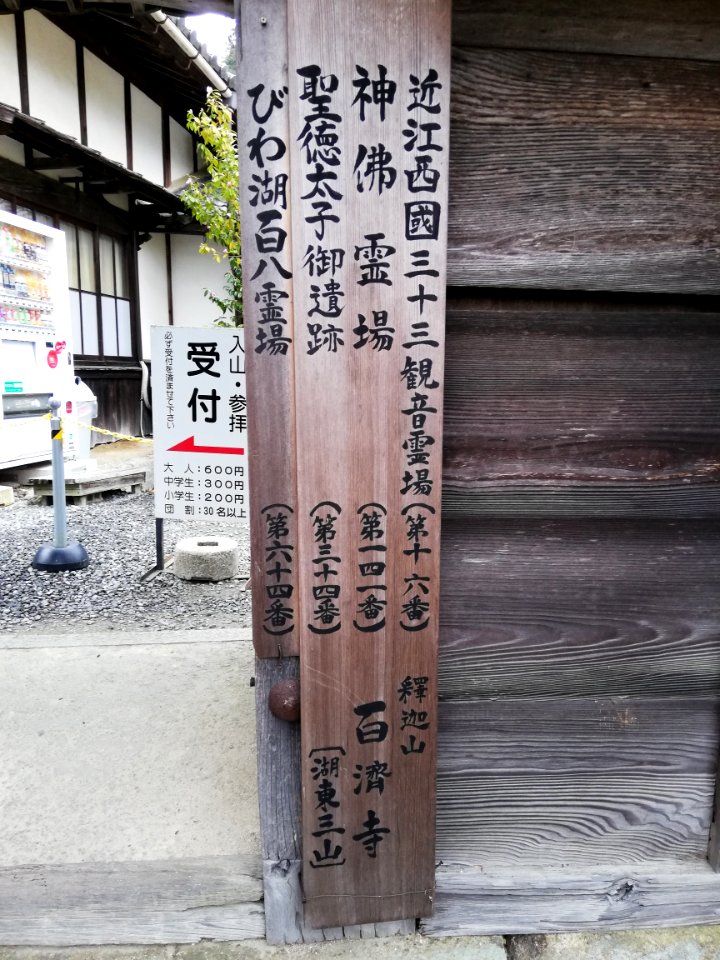 近江西國三十三観音霊場(第十六番)
釋迦山
神佛霊場(第一四一番)
百濟寺
聖徳太子御遺跡(第三十四番)
[湖東三山]
びわ湖百八霊場(第六十四番)
入山・参拝
受付
必ず受付を済ませて下さい
大人:600円
中学生:300円
小学生:200円
団割:30名以上